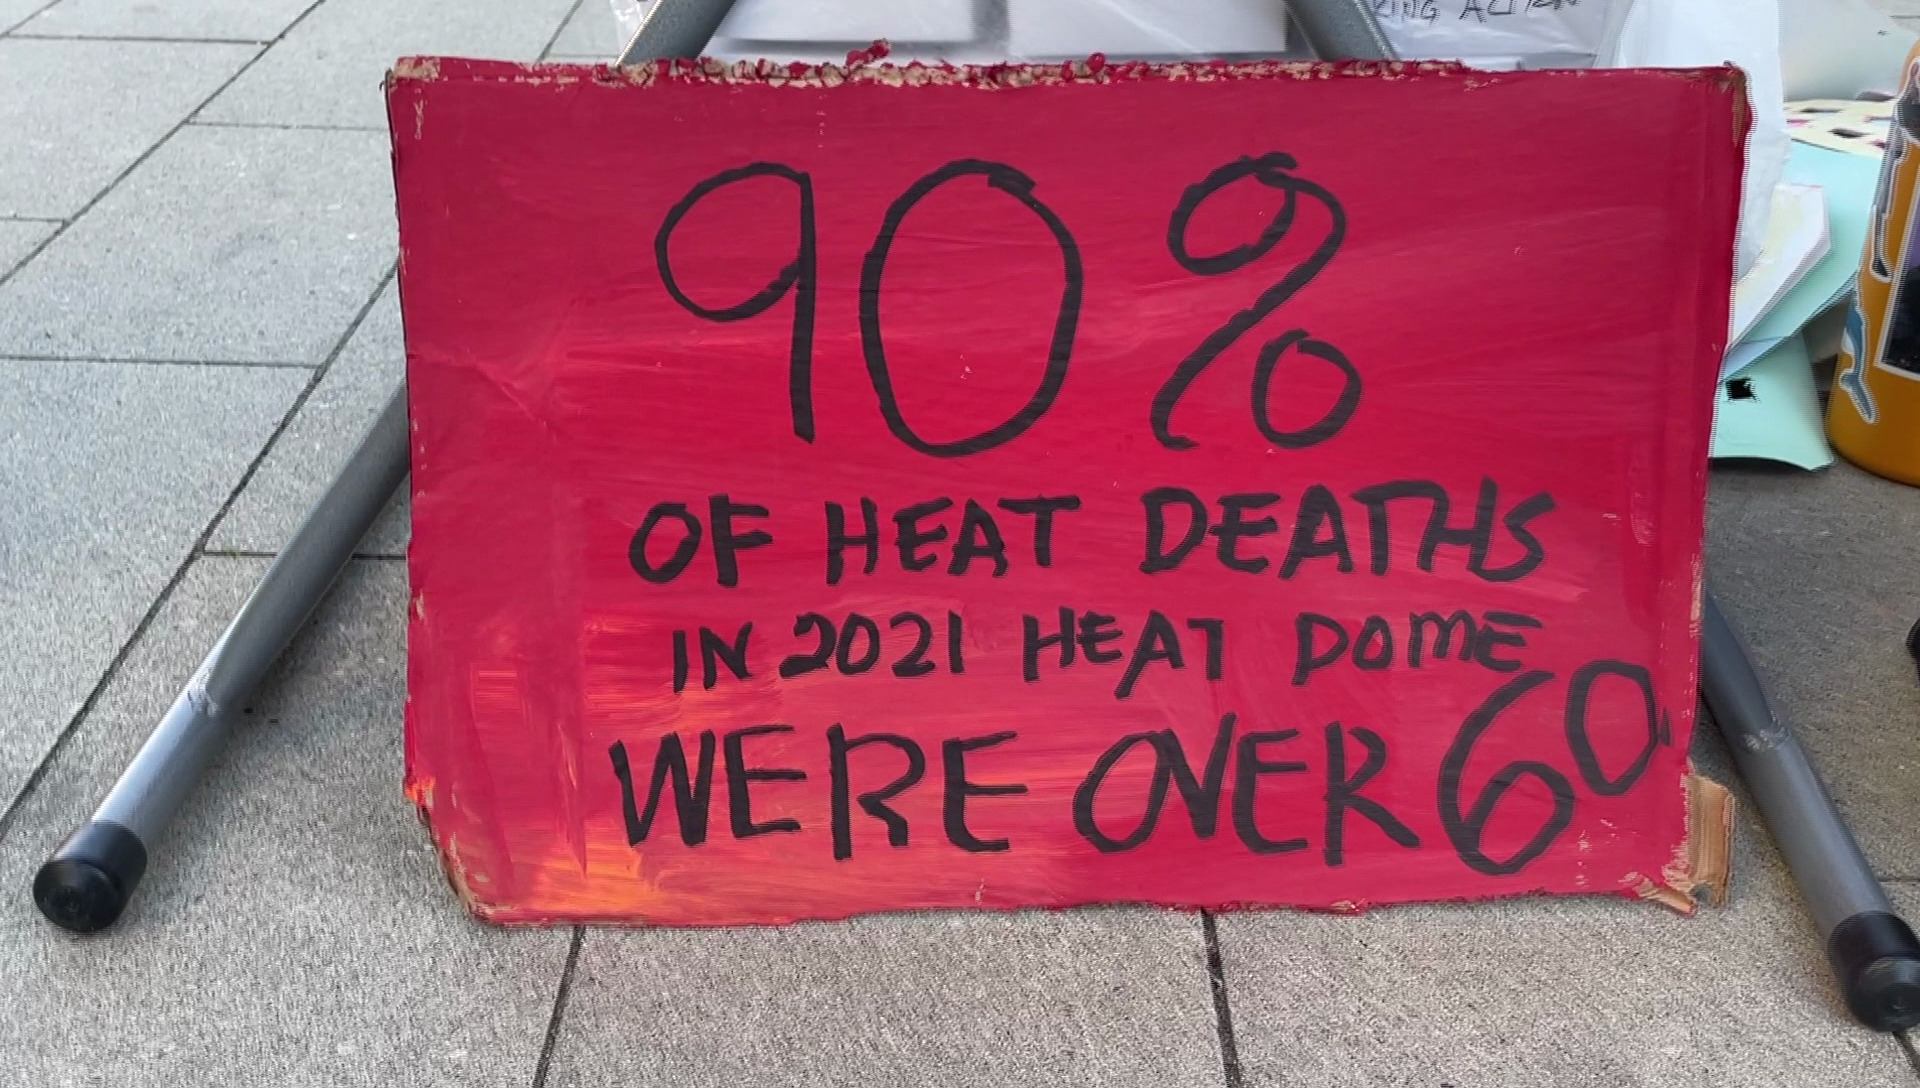 KING ACTION
90%
OF HEAT DEATHS
IN 2021 HEAT DOME
WERE OVER 60